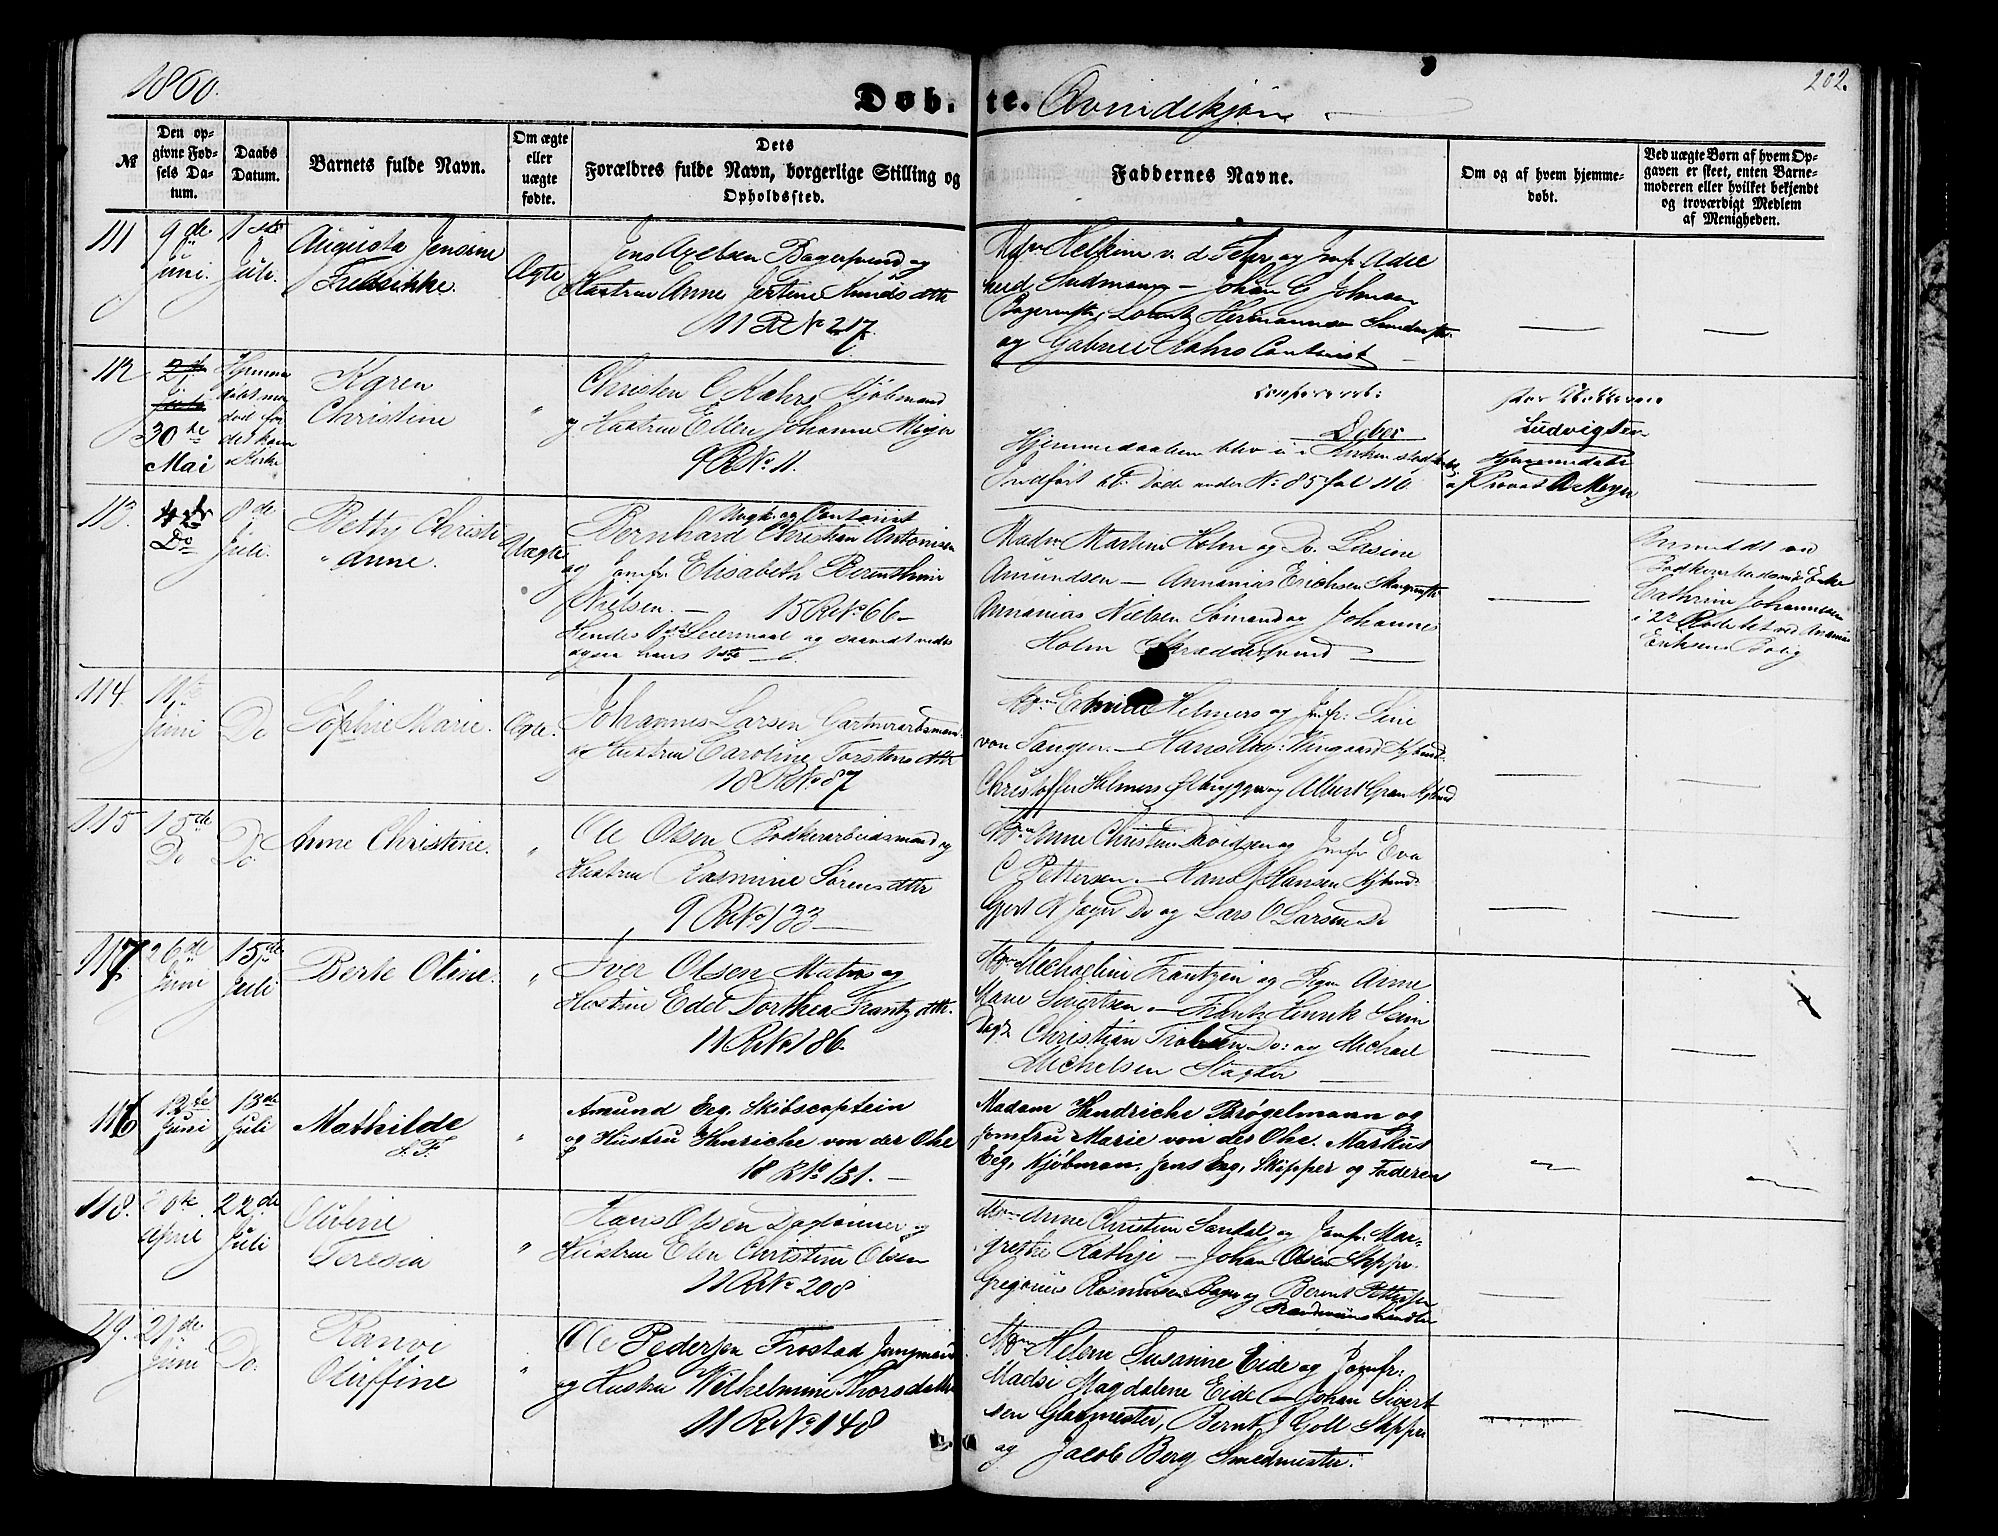 1860.
Døb-te. Qvindekjøn
202.
№
Den opgivne Fødsels Datum.
Daabs Datum.
Barnets fulde Navn.
Om ægte eller uægte fødte.
Dets Forældres fulde Navn, borgerlige Stilling og Opholdssted.
Faddernes Navne.
Om og af hvem hjemmedøbt.
Ved uægte Børn af hvem Opgaven er skeet, enten Barnemoderen eller hvilket bekjendt og troværdigt Medlem af Menigheden.
111
9de Juni.
1ste Juli.
Augusta Jensine
Fredrikke.
Ægte
Jens Axelsen Bagersvend og
Hustrue Anne Jertine Knudsdttr
11 R No 217.
Johan C Johnsen
Lorentz Hermannsen
og Gabriel Kahrs Contorist
112
30te Mai
Karen
Christine
"
Christen C Kahrs Kjøbmand
og Hustrue Ellen Johanne Meyer
9 R No 11.
Hjemmedaaben blev
Indført
Døde under No 85 fol 110.
Ludvigsen
Hjemmedøbt
af Provst A Meyer
113.
4de
Do
8de Juli.
Betty Christi
"anne.
Uægte
Ungk. og Contorist
Bernhard Christian Antonisen
og Jomfr Elisabeth Berenthine
Nielsen. — 15 R No 66 —
Hendes 1ste Leiermaal og saavidt vides
ogsaa hans 1ste
Madm Martine Holm og Do. Lasine
Amundsen — Annanias Erichsen
Annanias Nielsen Sømand og Johannes
Holm Skræddersvend
Anmeldt ved
Enke
Cathrine Johannesen
i 22 Rode
Eriksens Bolig
114.
11te Juni
Do
Sophie Marie.
Ægte.
Johannes Larsen Garverarbmand.
og Hustrue Caroline Torstensdttr
18 R No 87
Helmers og Jmfr: Sine
von Tangen. — Hans
Christoffer Helmers Ølbrygger og Albert Gran Kjbmd
115
15de
Do
Do.
Anne Christine.
"
Ole Olsen Bødkerarbeidsmand og
Hustrue Rasmine Sørensdttr
9 R No 133 —
Mdm Anne Christine Davidsen og Jmfr Eva
C Pettersen. — Hans J Hansen Kjbmd.
Gjert H Jæger Do og Lars O Larsen Do
117
26de Juni
15de Juli
Berte Oline.
"
Iver Olsen Matros og
Hustrue Edel Dorthea Frantzdttr.
11 R No 186.
Michaeline Frantzen og Pigen Anne
Marie Sivertsen. — Frantz Henrik Seim
Christian Do: og Michael
Michelsen
116
12te Juni
13de Juli
Mathilde
"
Amund Eeg. Skibscaptein
og Hustru Henriche von der Ohe
18 R No 151. —
Madam Hendriche Brøgelmann og
Jomfru Marie von der Ohe. Markus
Eeg, Kjøbman. Jens Eeg, Skipper og Faderen
118.
April
22de Juli
Oliverie
Teresia
"
Hans Olsen Daglønner og
Hustrue Elen Christine Olsen
11 R No 208
Mdm Anne Christine Sandal og Jomfr. Mar-
grethe Rathje — Johan Olsen Skipper.
Gregorius Rasmusen Bager og Bernt Pettersen
Brændeviinshandler
119.
21de Juni
Do.
Ranvi
Oluffine
"
Ole Pedersen Frostad Jungmand
og Hustru Wilhelmine Thorsdatter
11 R No 148
Mdm Helene Susanne Eide og Jomfr.
Madsi Magdalene Eide — Johan Sivert
sen Glasmester, Bernt J Goll Skipper
og Jacob Berg Smedmester.